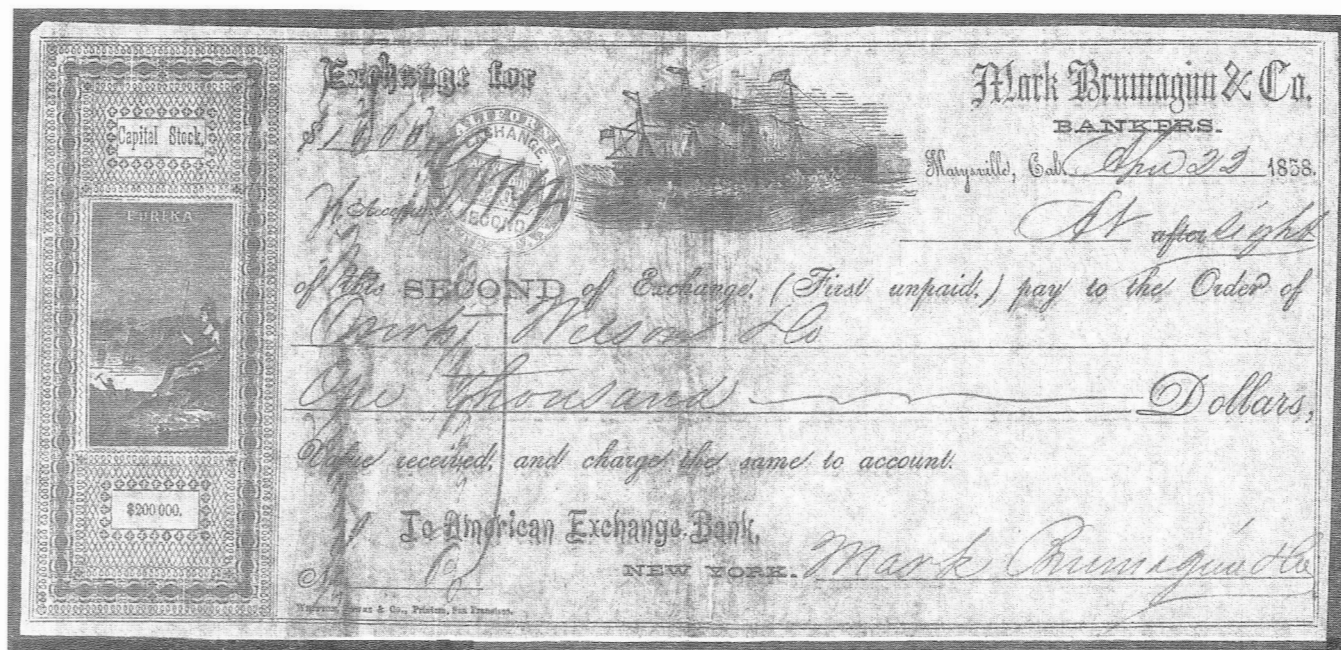 Exchange for
$1000
Capital Stock,
EUREKA
$200 000.
EXCHANGE,
SECOND
Mark Brumagim & Co.
BANKERS.
Marysville, Cal. Apr 22 1858.
At after sight
of this SECOND of Exchange, (First unpaid,) pay to the Order of
Wilson & Co
One Thousand Dollars,
Value received, and charge the same to account.
To American Exchange Bank,
NEW YORK. Mark Brumagim & Co
& Co., Printers, San Francisco.